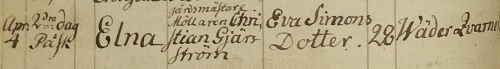 Apr. 2dra dag
4 Påsk
Elna
gårdsmästare
Möllaren Chri,
stian Gjärs-
ström
Eva Simons
Dotter.
28
Wäder Qvarne